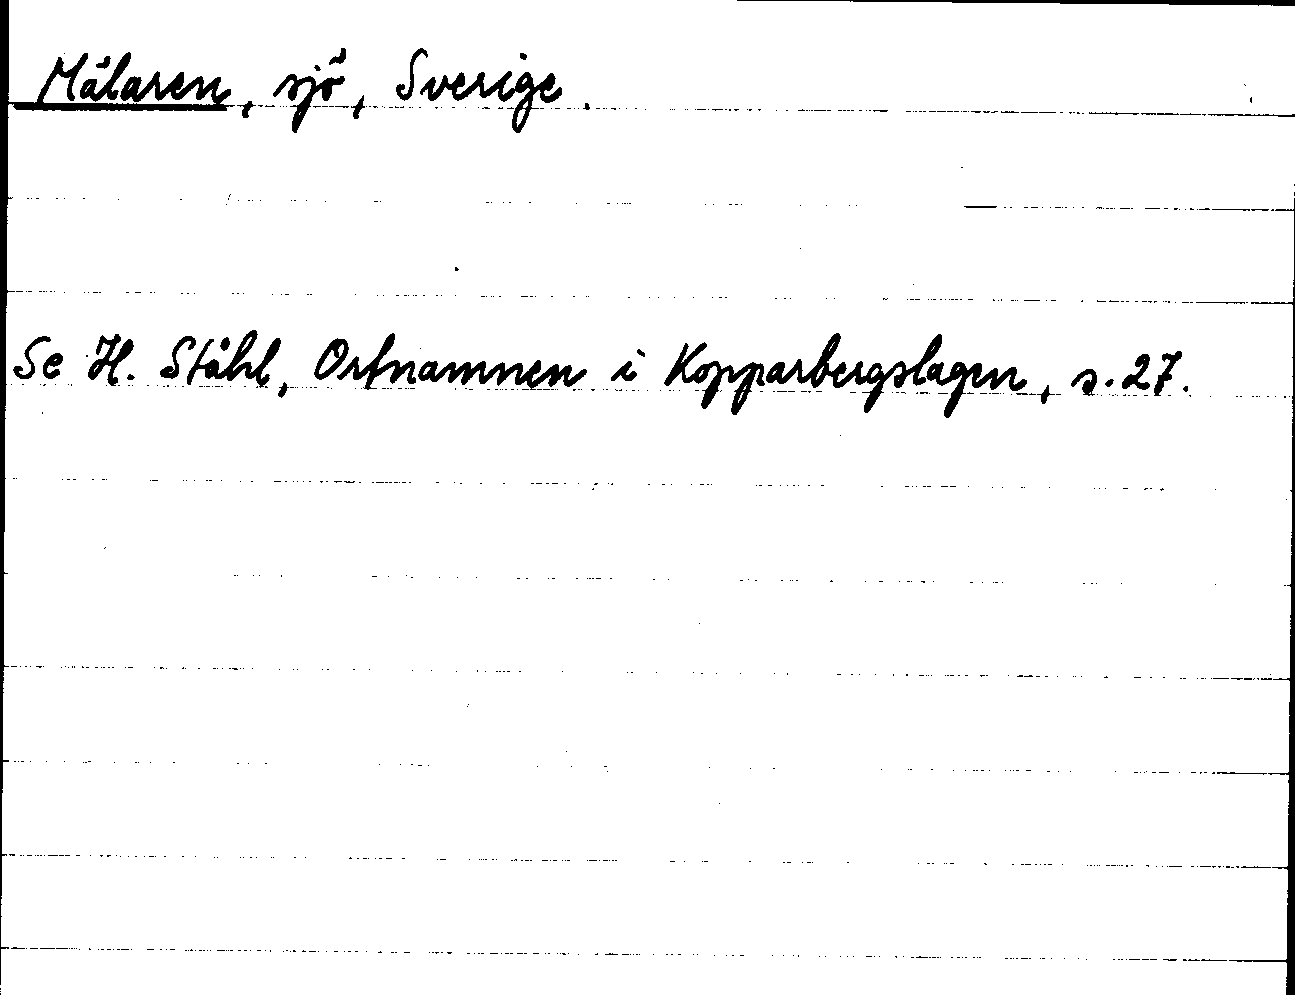 Mälaren, sjö, Sverige.
Se H. Ståhl, Ortnamnen i Kopparbergslagen, s. 27.